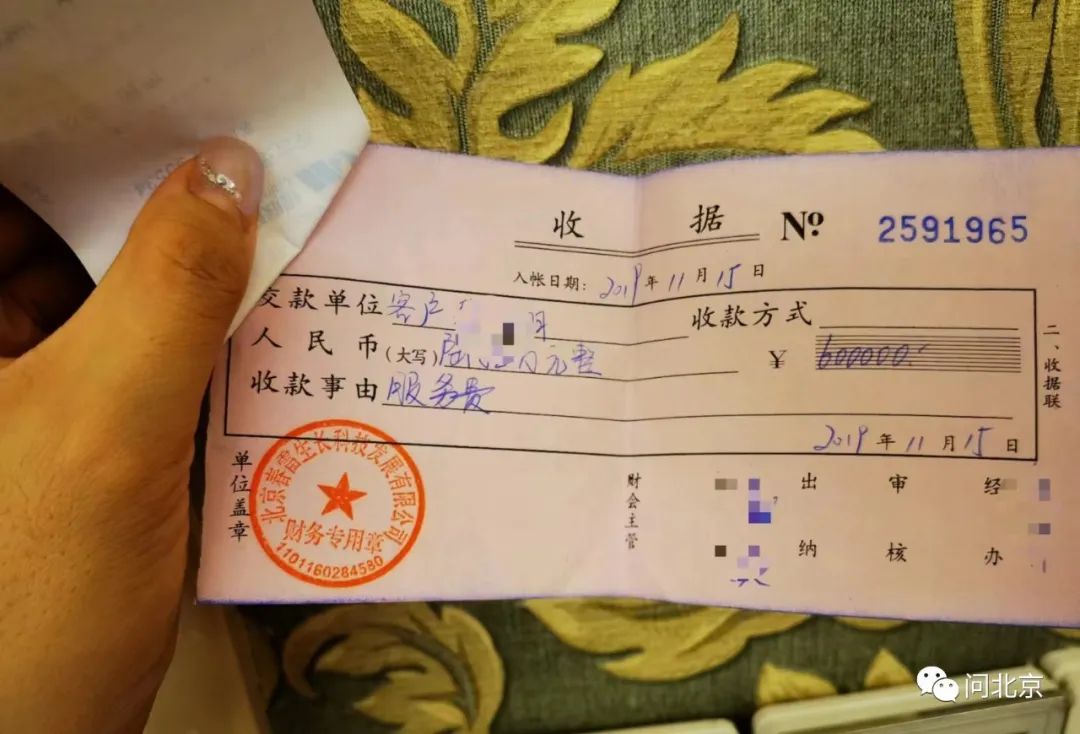 收 据 Nº 2591965
入帐日期: 2019年11月15日
交款单位 客户 收款方式
人民币(大写) 元整 ¥ 600000.
收款事由 服务费
2019年11月15日
二、收据联
单位盖章
北京春雷生长科技发展有限公司
财务专用章
1101160284580
财会主管
出纳
审核
经办
问北京